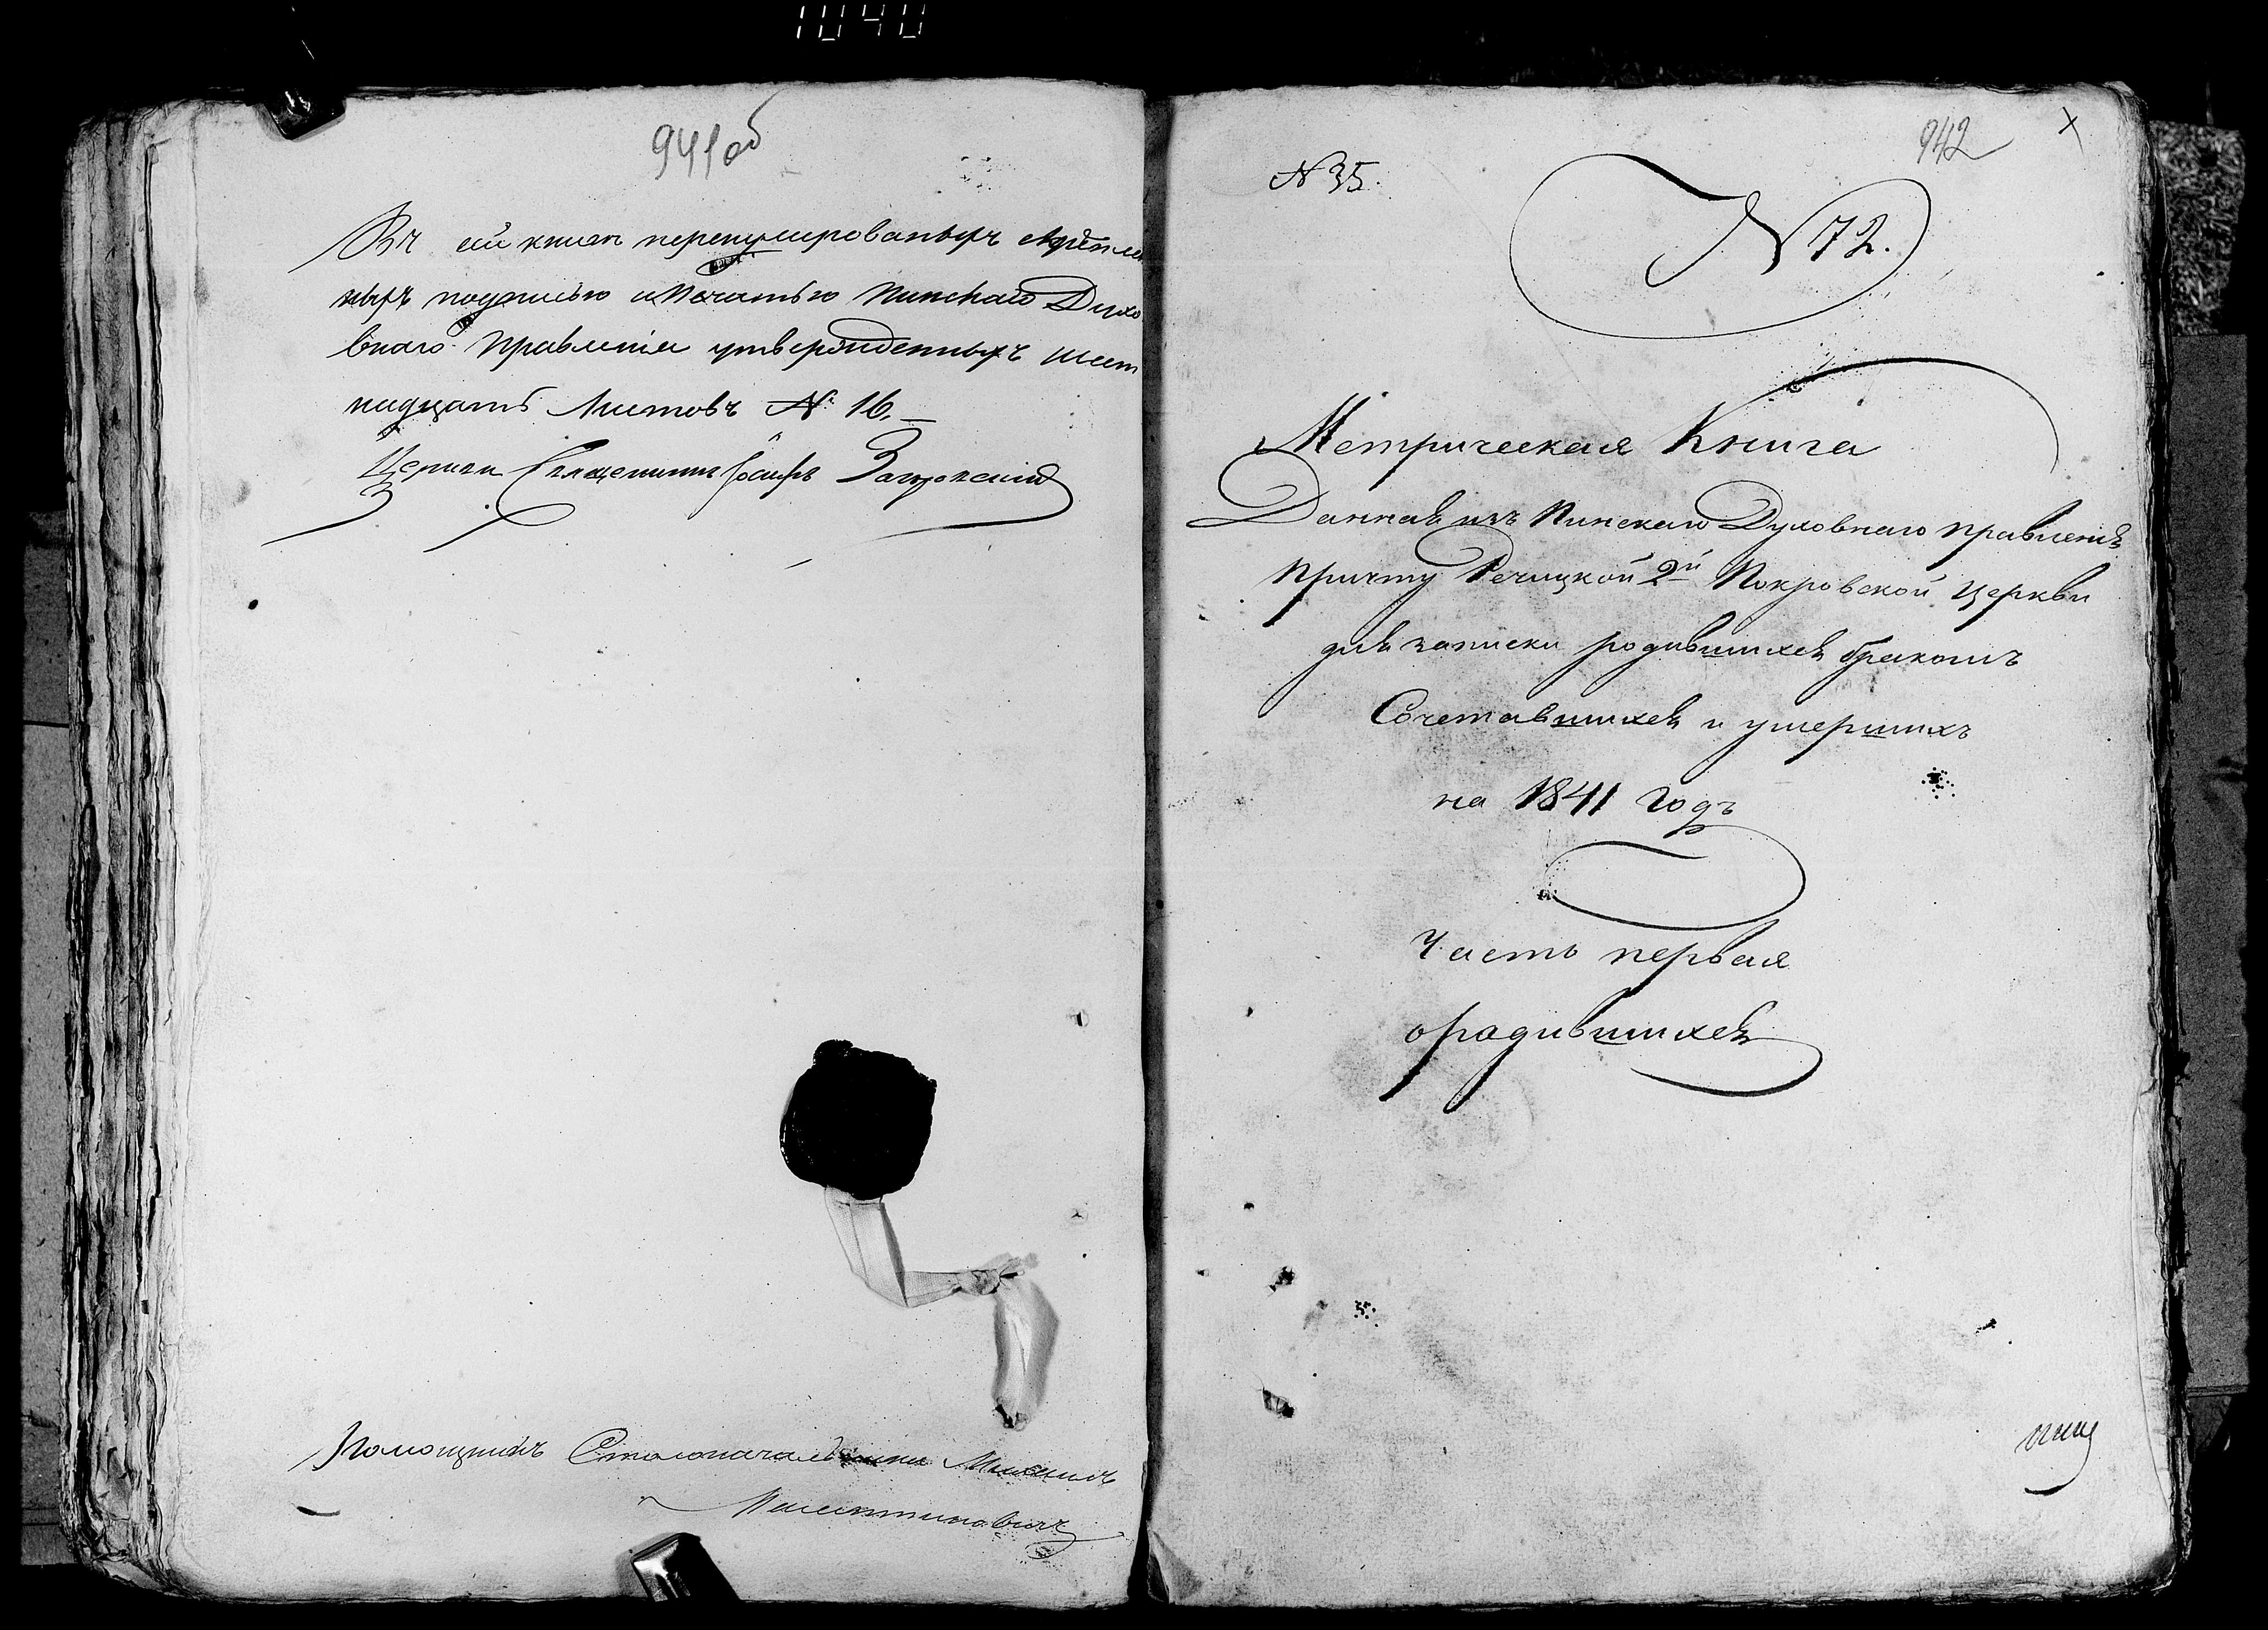 1040
941об
Въ сей книгѣ перенумерованыхъ скрѣплен
ныхъ подписью и Печатью Пинскаго Духо
внаго Правленія утвержденныхъ шест
надцать Листовъ № 16.
Церкви Священникъ Іосифъ
Помощникъ Столоначальника Михаилъ
942
№ 35.
№ 72.
Метрическая Книга
Данная изъ Пинскаго Духовнаго правленія
причту Речицкой 2й Покровской Церкви
для записки родившихся бракомъ
Сочетавшихся и умершихъ
на 1841 Годъ
Часть первая
о радившихся